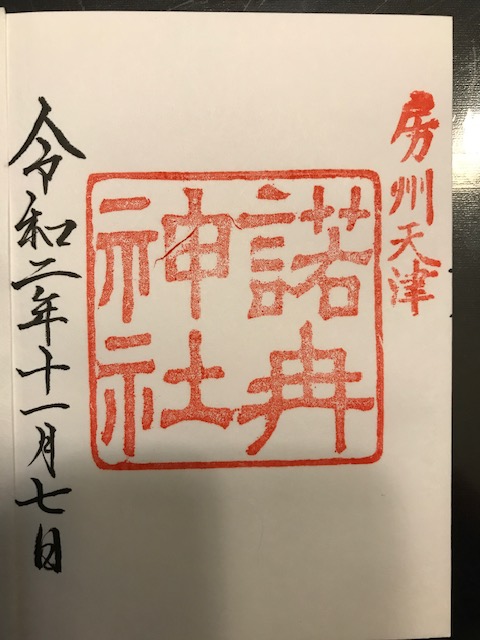 房州天津
諾冉
神社
令和二年十一月七日